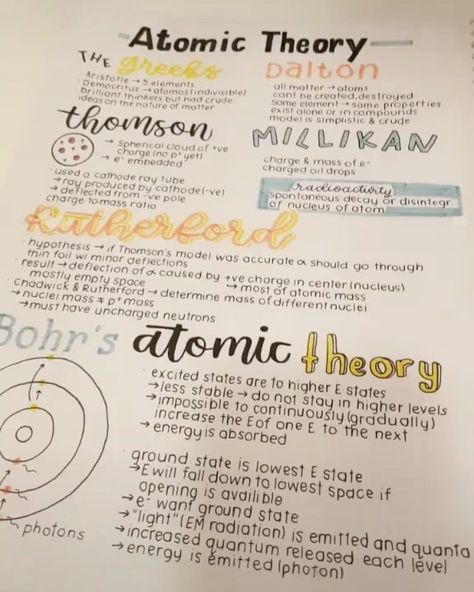 Atomic Theory
THE Greeks
Aristotle → 5 elements
Democritus → atomos (indivisible)
brilliant thinkers but had crude
ideas on the nature of matter
Dalton
all matter → atoms
cant be created, destroyed
same element → same properties
exist alone or in compounds
model is simplistic & crude
thomson
→ Spherical cloud of +ve
charge (no p+ yet)
→ e- embedded
· used a cathode ray tube
→ ray produced by cathode (-ve)
→ deflected from -ve pole
charge-to-mass ratio
MILLIKAN
· charge & mass of e-
charged oil drops
radioactivity
spontaneous decay or disintegr.
of nucleus of atom
Rutherford
· hypothesis → if Thomson's model was accurate α should go through
thin foil w/ minor deflections
· result → deflection of α caused by +ve charge in center (nucleus)
mostly empty space → most of atomic mass
· Chadwick & Rutherford → determine mass of different nuclei
→ nuclei mass ≠ p+ mass
→ must have uncharged neutrons
Bohr's atomic theory
· excited states are to higher E states
→ less stable → do not stay in higher levels
→ impossible to continuously (gradually)
increase the E of one E to the next
→ energy is absorbed
· ground state is lowest E state
→ E will fall down to lowest space if
opening is availible
→ e- want ground state
→ "light" (EM radiation) is emitted and quanta
→ increased quantum released each level
→ energy is emitted (photon)
photons